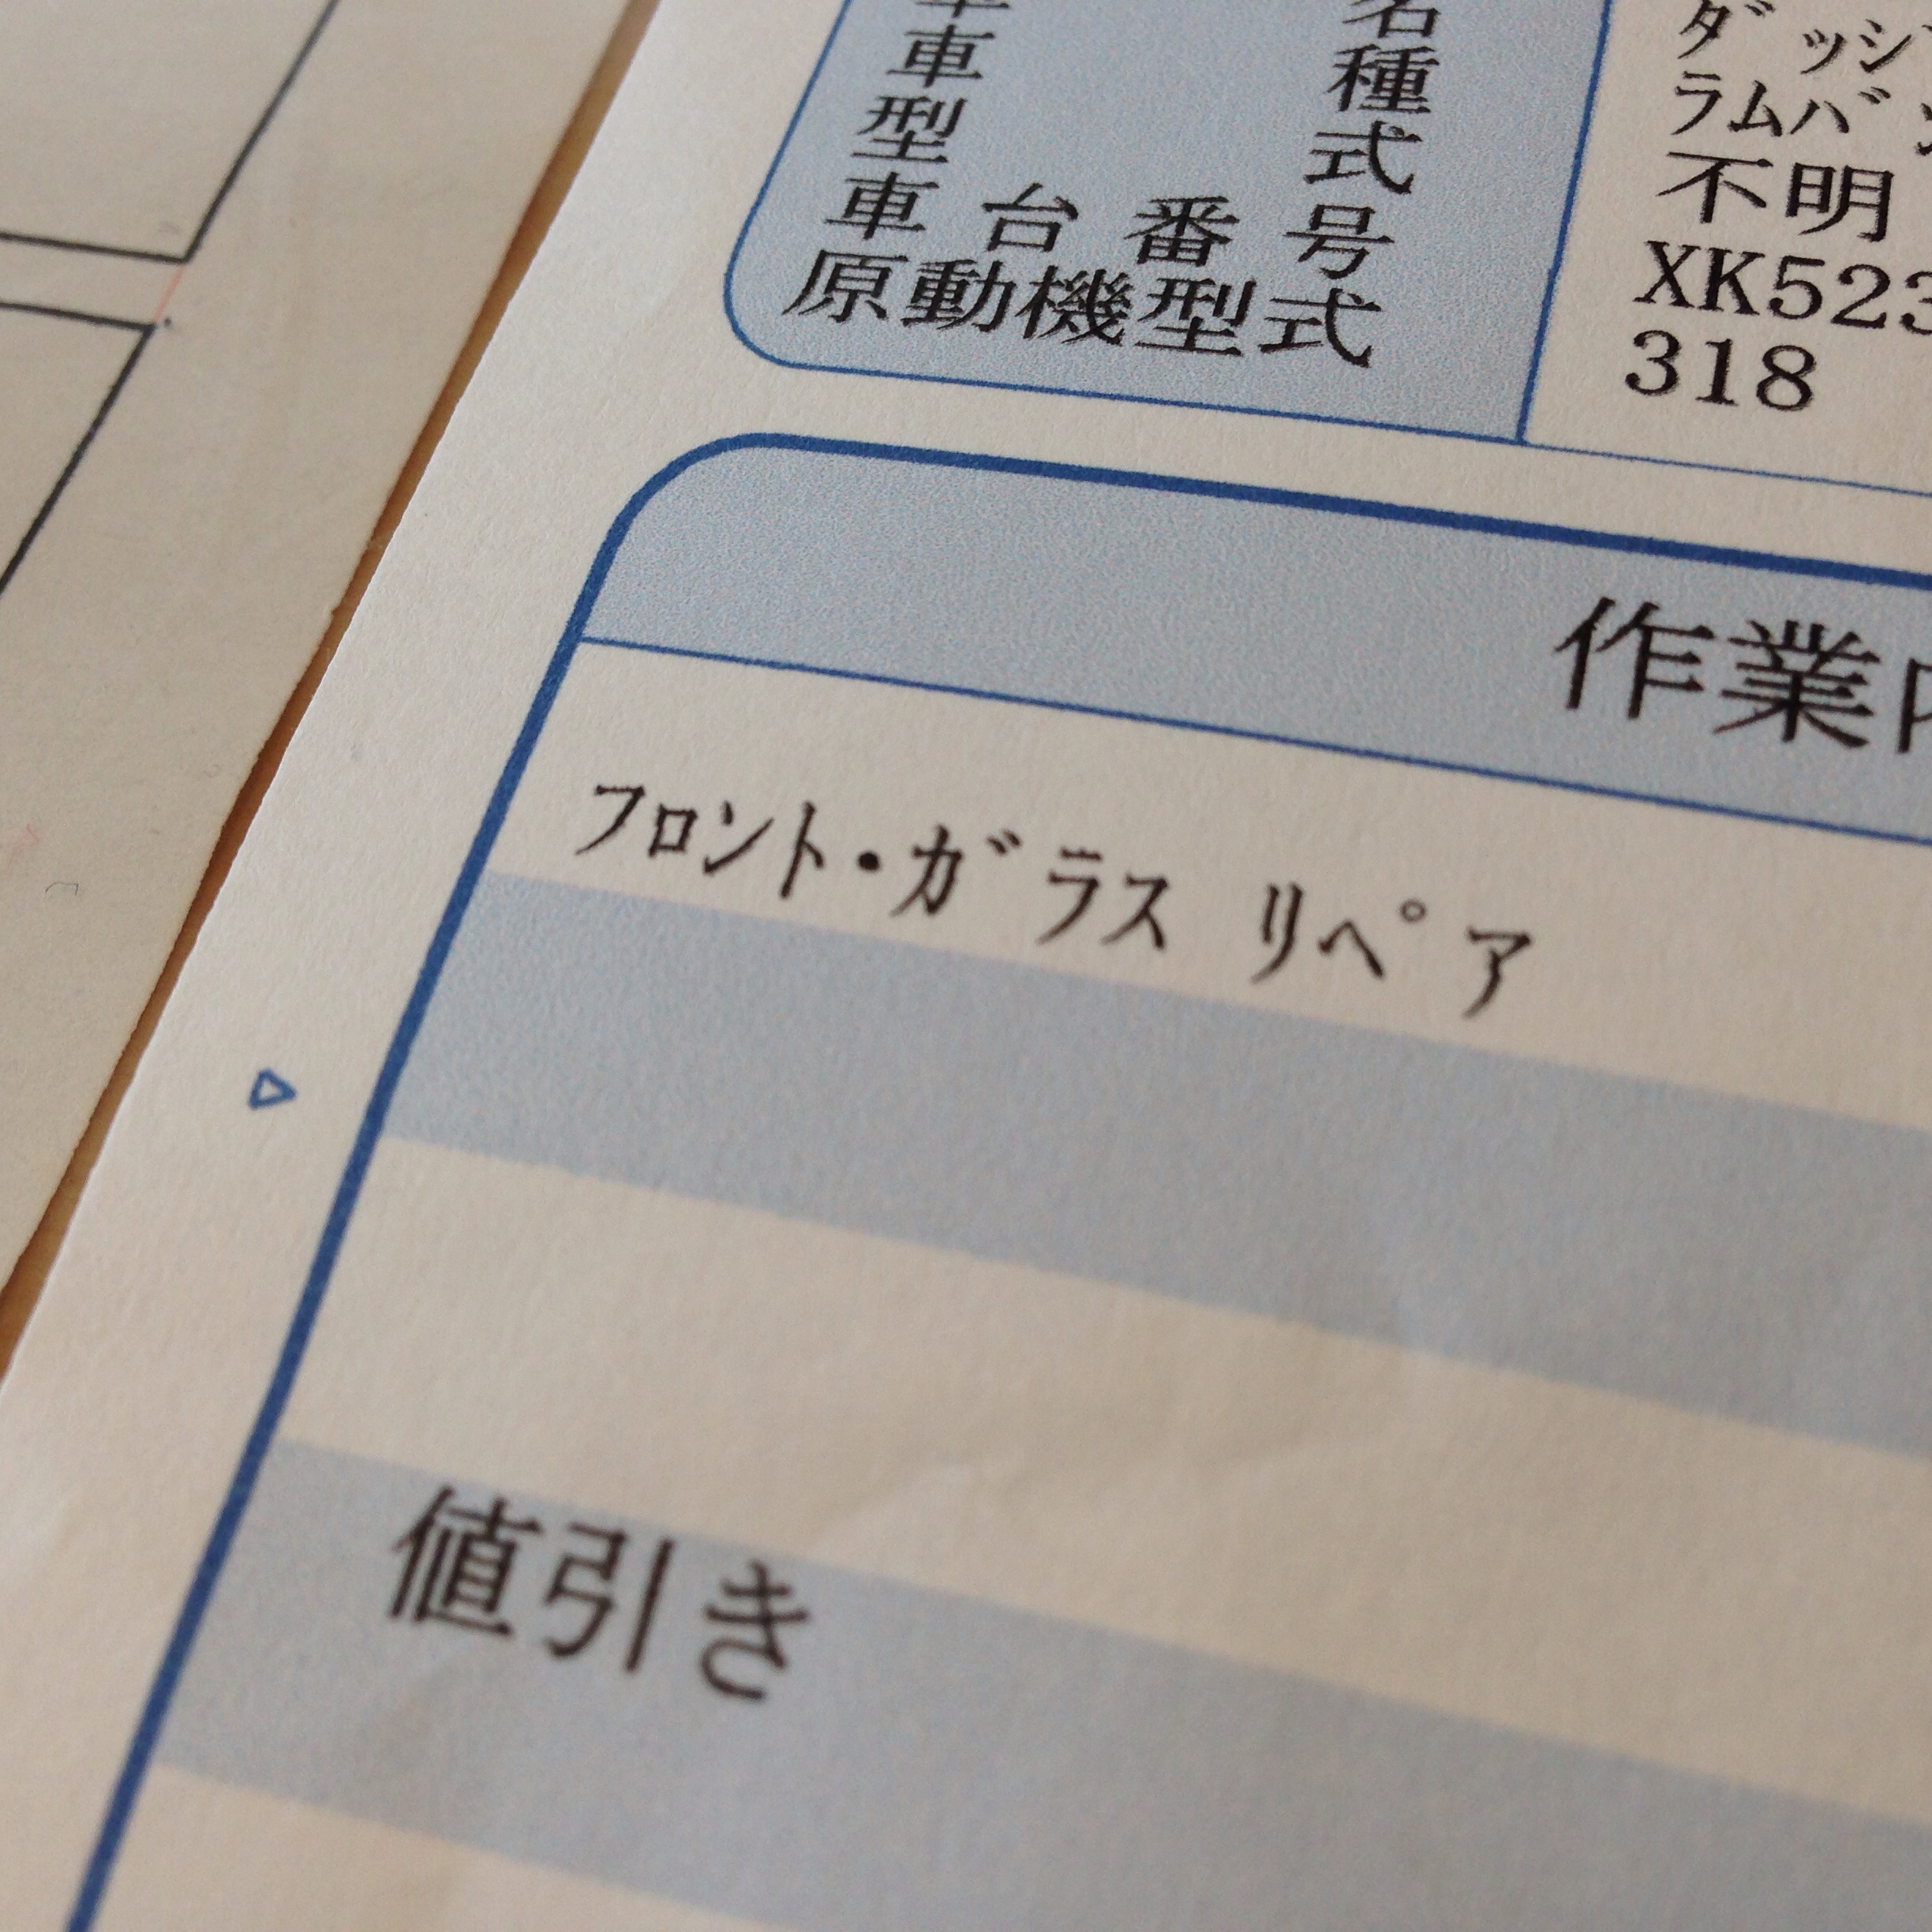 車名 ﾀﾞｯｼﾞ
車種 ﾗﾑﾊﾞﾝ
型式 不明
車台番号 XK523
原動機型式 318
作業内
ﾌﾛﾝﾄ･ｶﾞﾗｽ ﾘﾍﾟｱ
値引き